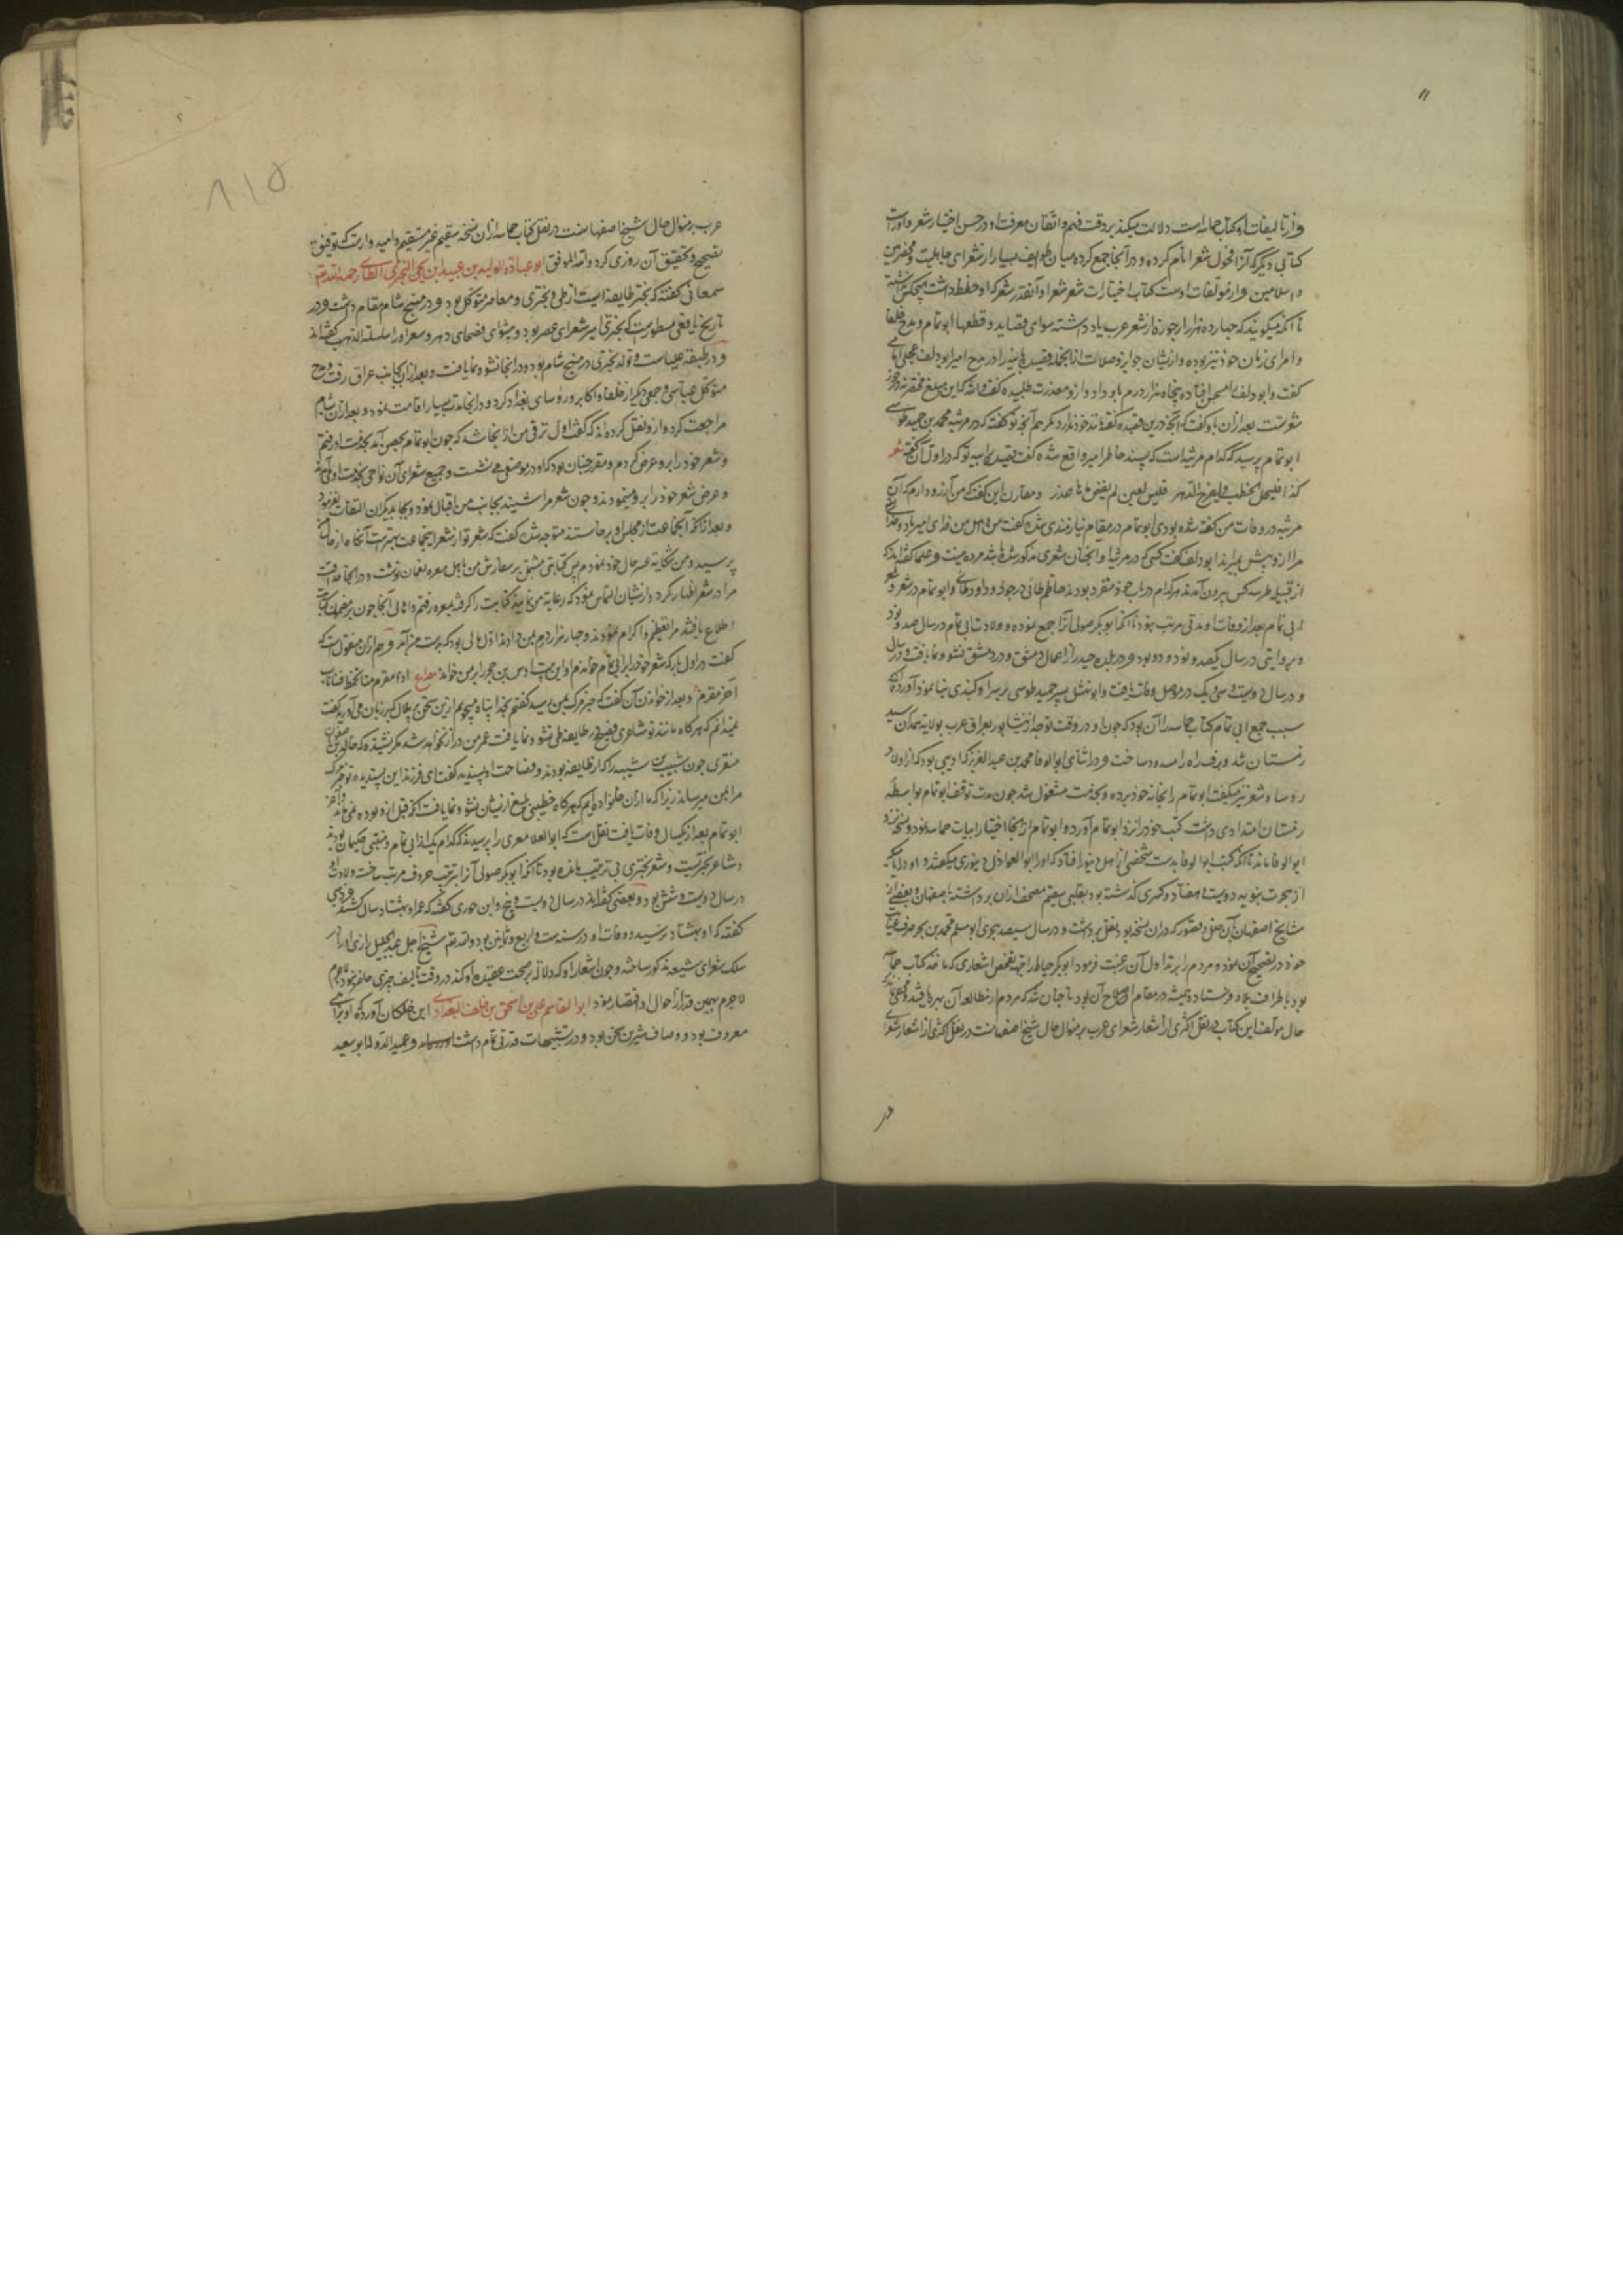 واز تالیفات او کتاب حماسه است دلالت میکند بر دقت فهم و اتقان معرفت او در حسن اختیار شعر و او راست
کتابی دیگر که آنرا فحول شعرا نام کرده و در آنجا جمع کرده میان طوایف بسیار از شعرای جاهلیت و مخضرمین
و اسلامیین و از مولفات اوست کتاب اختیارات شعر شعرا و آنقدر شعر که او حفظ داشت هیچکس نداشته
تا آنکه میگویند که چهارده هزار ارجوزه از شعر عرب یاد داشته سوای قصاید و قطعها ابو تمام و مدح خلفا
و امرای زمان خود نیز نموده و ازیشان جوایز و صلات از انجمله قصیده بائیه را در مدح امیر ابو دلف عجلی
کفت و ابو دلف را مستحسن افتاده پنجاه هزار درم بابو داد و ازو معذرت طلبیده کفت والله که این مبلغ مختصر نه در خور
شعر تست بعد از ان باو کفت که آنچه درین قصیده کفته مانند خود ندارد مکر هم آنچه تو کفته که در مرثیه محمد بن حمید طوسی
ابو تمام پرسید که کدام مرثیه است که پسند خاطر امیر واقع شده کفت قصیده رائیه تو که در اول آن کفته شعر
کذا فلیجل الخطب و لیفدح الدهر فلیس لعین لم یفض ماؤها عذر و مقارن این کفت که من آرزو دارم که آن
مرثیه در وفات من کفته شده بودی ابو تمام در مقام نیازمندی شد کفت من و اهل من فدای امیر باد و خدای
مرا ازو پیش بمیراند ابو دلف کفت کسی که در مرثیه او آنچنان شعری مذکور شده باشد مرده نیست و علما کفته اند که
از قبیله طی سه کس بیرون آمدند که هر کدام در باب خود متفرد بودند حاتم طائی در جود و داود طائی و ابو تمام در شعر و شعر
ابی تمام بعد از وفات او مدتی مرتب نبود تا آنکه ابو بکر صولی آنرا جمع نموده و ولادت ابی تمام در سال صد و نود
و بروایتی در سال یکصد و نود و دو بود و در بلده جیدر از اعمال دمشق و در دمشق نشو و نما یافت و در سال
و در سال دویست و سی و یک در موصل وفات یافت و ابو نهشل پسر حمید طوسی بر سر او کنبدی بنا نمود آورده اند که
سبب جمع ابی تمام کتاب حماسه را آن بود که چون او در وقت توجه از نیشابور بعراق عرب بولایه همدان رسید
زمستان شد و برف راه را مسدود ساخت و در اثنای ابو الوفا محمد بن عبد العزیز که ادیبی بود که از اولاد
روسا و شعر نیز میکفت ابو تمام را بخانه خود برده و بخدمت مشغول شد چون مدت توقف ابو تمام بواسطه
زمستان امتدادی داشت کتب خود را نزد ابو تمام آورد و ابو تمام از انجا اختیار ابیات حماسه نمود و نسخه نزد
ابو الوفا ماند تا آنکه کتب ابو الوفا بدست شخصی از اهل دینور افتاد که او را ابو العواذل دینوری میکفتند و او در آنکه
از هجرت نبویه دویست و هفتاد و کسری کذشته بود بقلبی سقیم مصحف ازان برداشته باصفهان و بعضی از
مشایخ اصفهان بآن خلل و قصور که در ان نسخه بود نقل برداشت و در سال سیصد هجری ابو مسلم محمد بن بحر صرف عنایت
خود در تصحیح آن نمود و مردم را بر تداول آن رغبت فرمود ابو بکر خیاط را جهة تفحص اشعاری که ماخذ کتاب حماسه
بود باطراف بلاد فرستاد و همیشه در مقام اصلاح آن بود تا چنان شد که مردم از مطالعه آن بهره یافتند و مخفی نماند که
حال مولف این کتاب در نقل اکثری از اشعار شعرای عرب بر منوال حال شیخ اصفهانست در نقل اکثری از اشعار شعرا
عرب بر منوال حال شیخ اصفهانست در نقل کتاب حماسه از ان نسخه سقیم غیر مستقیم و امید وارست که توفیق
تصحیح و تحقیق آن روزی کردد والله الموفق ابو عبادة الولید بن عبید ابن یحیی البحتری الطائی رحمه الله تعالی
سمعانی کفته که بحتر طایفه ایست از طی و بحتری و معاصر متوکل بود و در منبج شام مقام داشت و در
تاریخ یافعی مسطورست که بحتری امیر شعرای عصر بود و پیشوای فصحای دهر و شعر او را سلسلة الذهب کفته اند
و در طبقه علیاست و تولد بحتری در منبج شام بود و در انجا نشو و نما یافت و بعد از ان بجانب عراق رفت و مدح
متوکل عباسی و جمعی دیکر از خلفا و اکابر و روسای بغداد کرد و در انجا مدتی بسیار اقامت نمود و بعد از ان بشام
مراجعت کرد و ازو نقل کرده اند که کفت اول ترقی من از انجا شد که چون ابو تمام بحمص آمد بخدمت او رفتم
و شعر خود را برو عرض کردم و مقرر چنان بود که او در موضعی می نشست و جمیع شعرای آن نواحی بخدمت او می آمدند
و عرض شعر خود را برو مینمودند و چون شعر مرا شنید بجانب من اقبال نمود و بجانب دیکران التفات نفرمود
و بعد از انکه آنجماعت از مجلس او برخاستند متوجه شد کفت که شعر تو از شعر اینجماعت بهترست آنکاه از حال من
پرسید و من شکایت عسر حال خود نمودم پس کتابتی مشتمل بر سفارش من باهل معره نعمان نوشت و در انجا حذاقت
مرا در شعر اظهار کرد و ازیشان التماس نمود که رعایة من نمایند کتابت را کرفته بمعره رفتم و اهالی آنجا چون بر مضمون کتابت
اطلاع یافتند مرا تعظیم و اکرام نمودند و چهار هزار درم بمن دادند اول مالی بود که بدست من آمد و هم از ان منقول است که
کفت در اول بار که شعر خود را بر ابی تمام خواندم او این بیت اوس بن حجر را بر من خواند مصراع اذا مقرم منا ذرا حد نابه
آخر مقرم و بعد از خواندن آن کفت که خبر مرک بمن رسید کفتم بخدا پناه میجویم ازین سخن
نمیدانم که هرکاه مانند تو شاعری فصیح در طایفه طی نشو و نما یافت عمر من دراز نخواهد شد مکر نشنیده که خالد بن صفوان
منقری چون شبیب بن شیبه را که از طایفه بودند و فصاحت او پسندیده کفت ای فرزند این پسندیده تو خبر مرک
مرا بمن میرساند زیرا که ما از ان خانواده ایم که هرکاه خطیبی بلیغ ازیشان نشو و نما یافت آنکه قبل ازو بوده نمی ماند و آخر
ابو تمام بعد از یکسال وفات یافت نقل است که ابو العلا معری را پرسیدند که کدام یک از ابی تمام و متنبی حکیمان بودند
و شاعر بحتریست و شعر بحتری بی ترتیب مانده بود تا آنکه ابو بکر صولی آنرا بترتیب حروف مرتب ساخت و ولادت او
در سال دویست و شش بود و بعضی کفته اند در سال دویست و پنج و ابن جوزی کفته که عمر او هشتاد سال کشید و ذهبی
کفته که او بهشتاد نرسید و وفات او در سنه ست و اربع و ثمانین بود والله اعلم شیخ اجل عبد الجلیل رازی او را در
سلک شعرای شیعه مذکور ساخته و چون اشعار او که دلالة بر صحت عقیده او کند در وقت تالیف چیزی حاضر نبود لاجرم
لاجرم بهمین قدر از احوال او اقتصار نمود ابو القاسم علی بن اسحق بن خلف البغدادی ابن خلکان آورده او براهی
معروف بود و وصاف شیرین سخن بود و در تشبیهات قدرتی تمام داشت و عمید الدوله ابو سعید